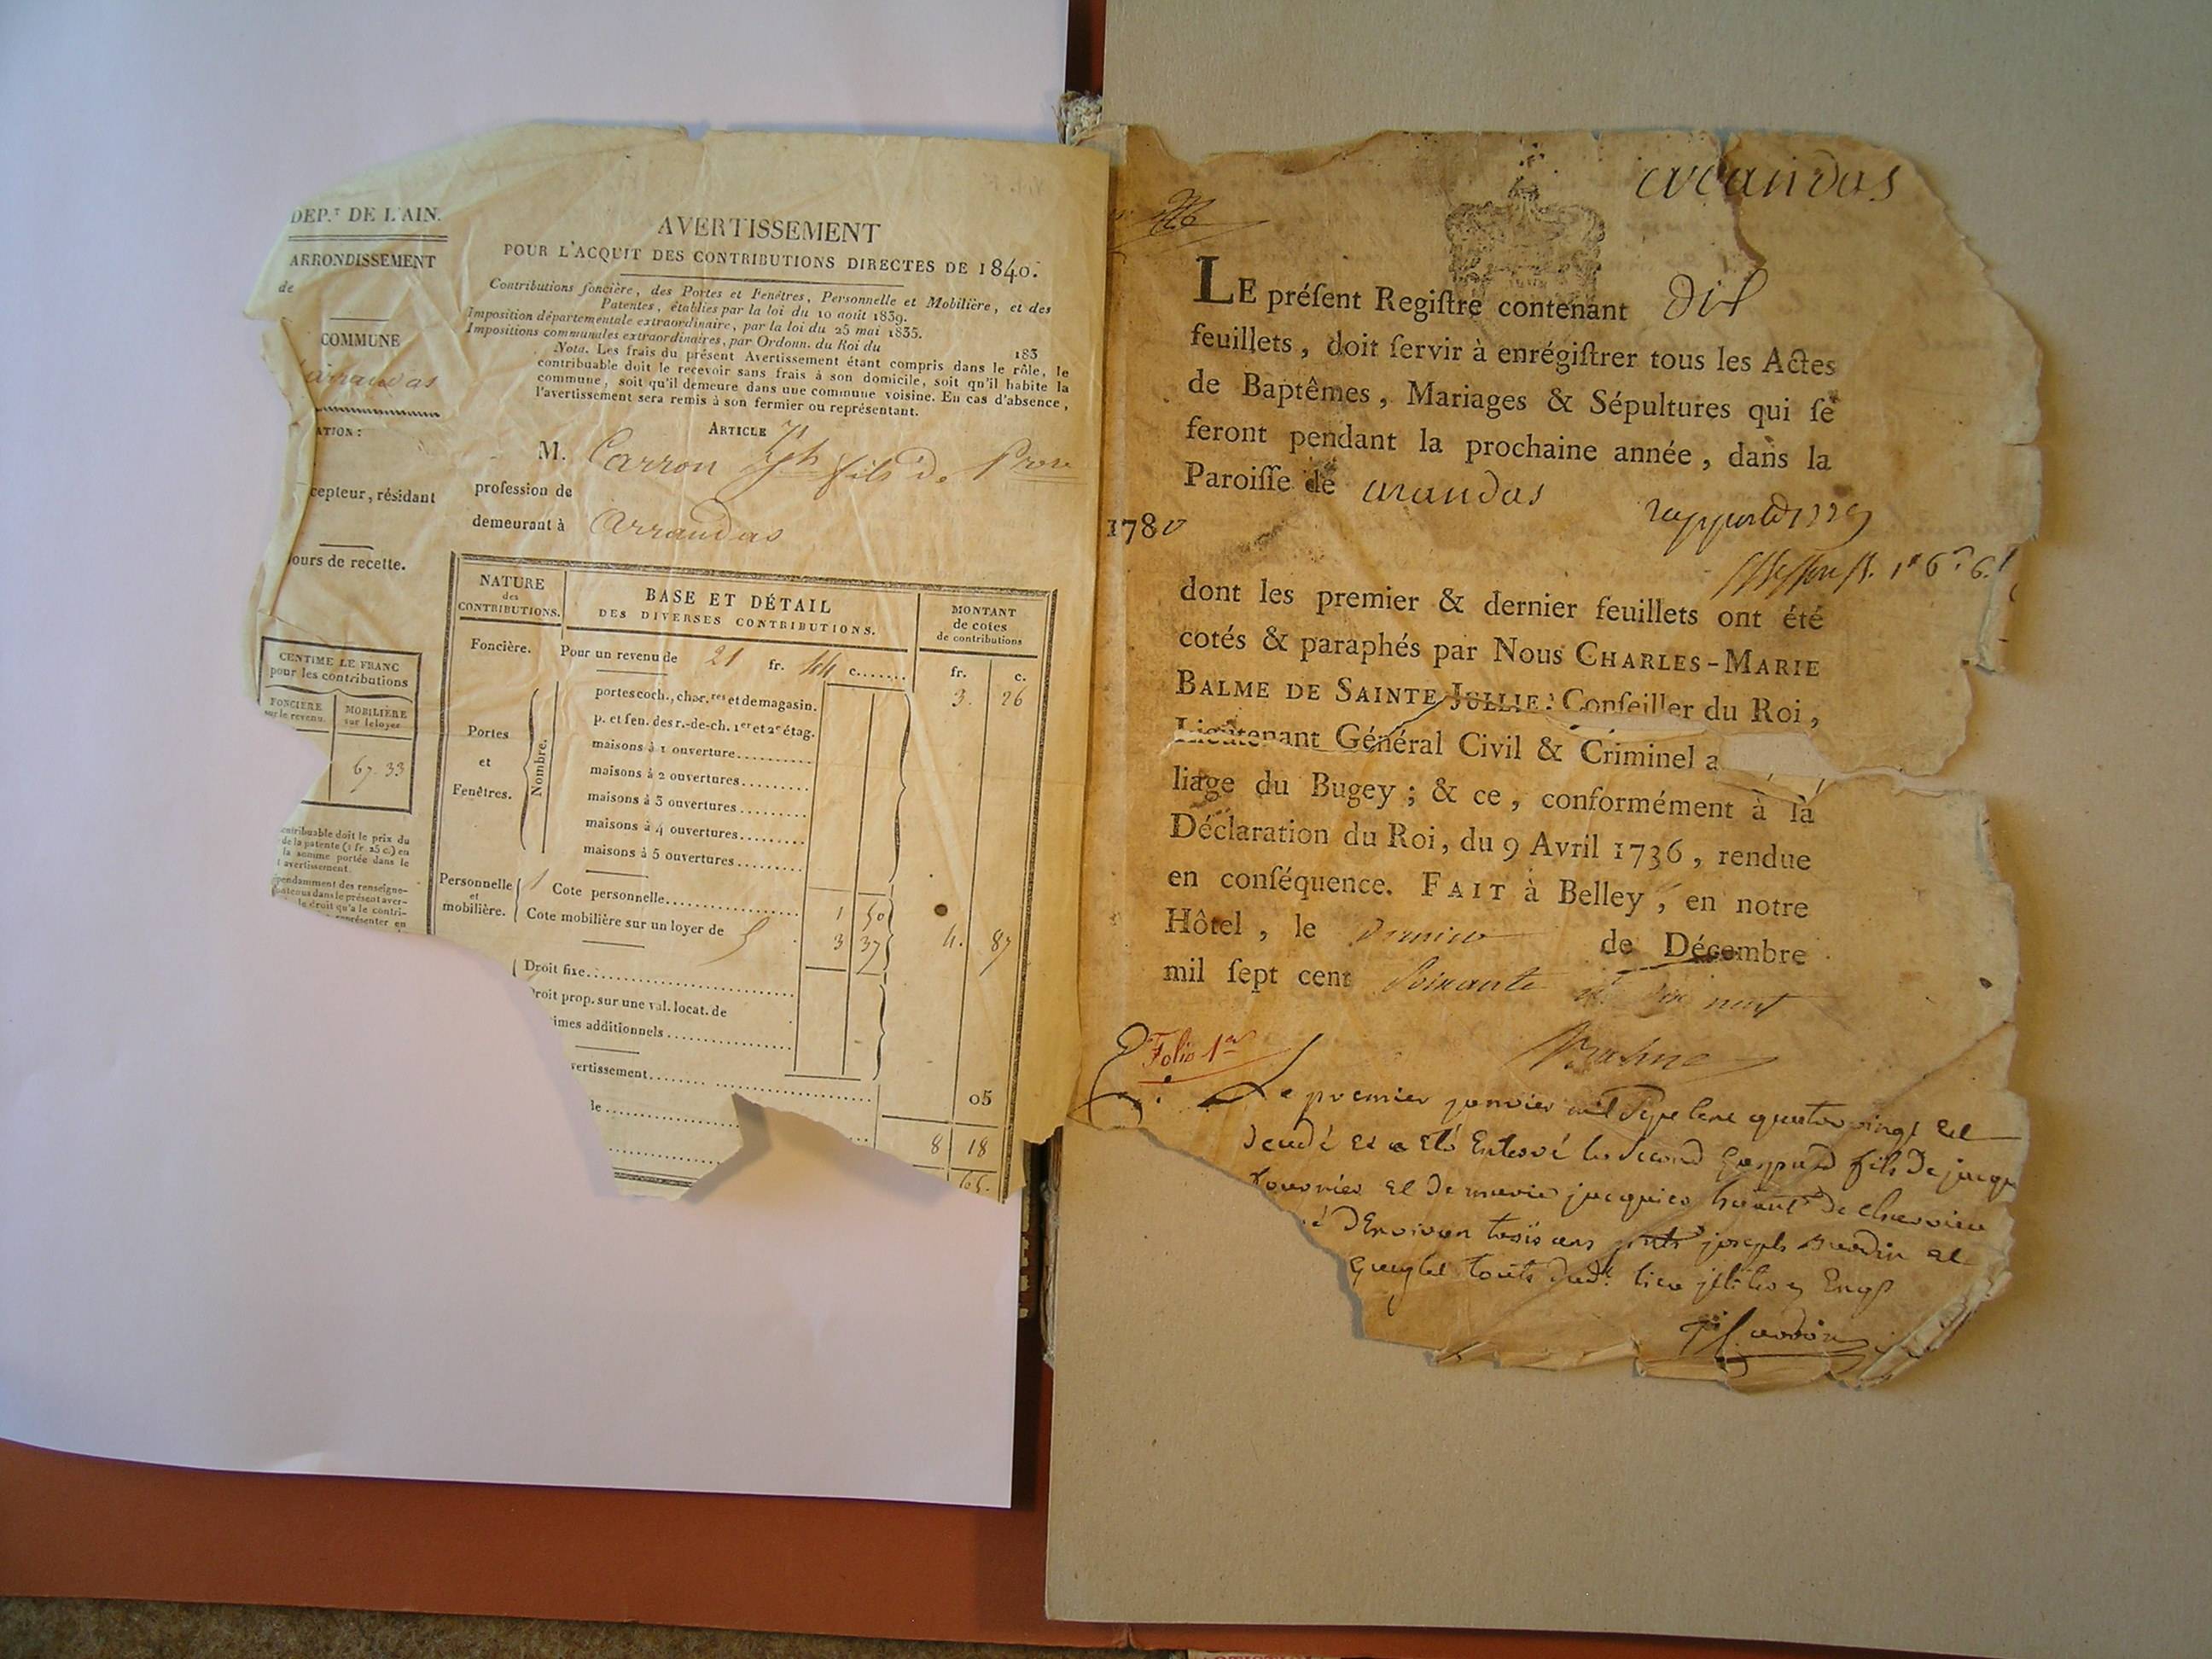 DEP.T DE L'AIN.
ARRONDISSEMENT
de
COMMUNE
arrandas
ATION :
cepteur, résidant
jours de recette.
CENTIME LE FRANC
pour les contributions
FONCIÈRE
sur le revenu.
MOBILIÈRE
sur le loyer
67.33
contribuable doit le prix du
de la patente (1 fr 25 c.) en
la somme portée dans le
t avertissement.
pendamment des renseigne-
contenus dans le présent aver-
le droit qu'a le contri-
représenter en
AVERTISSEMENT
POUR L'ACQUIT DES CONTRIBUTIONS DIRECTES DE 1840.
Contributions foncière, des Portes et Fenêtres, Personnelle et Mobilière, et des
Patentes, établies par la loi du 10 août 1839.
Imposition départementale extraordinaire, par la loi du 25 mai 1835.
Impositions communales extraordinaires, par Ordonn. du Roi du 183
Nota. Les frais du présent Avertissement étant compris dans le rôle, le
contribuable doit le recevoir sans frais à son domicile, soit qu'il habite la
commune, soit qu'il demeure dans une commune voisine. En cas d'absence,
l'avertissement sera remis à son fermier ou représentant.
ARTICLE 71
M. Carron Jph fils de
profession de
demeurant à Arrandas
NATURE
des
CONTRIBUTIONS.
BASE ET DÉTAIL
DES DIVERSES CONTRIBUTIONS.
MONTANT
de cotes
de contributions
Foncière. Pour un revenu de 21 fr. 44 c....... fr. c.
3. 26
Portes
et
Fenêtres.
Nombre.
portes coch., char.res et de magasin.
p. et fen. des r.-de-ch. 1er et 2e étag.
maisons à 1 ouverture..........
maisons à 2 ouvertures.........
maisons à 3 ouvertures ........
maisons à 4 ouvertures........
maisons à 5 ouvertures ........
Personnelle
et
mobilière.
1 Cote personnelle.................. 1 50
Cote mobilière sur un loyer de 5 3 37 4. 87
Droit fixe...........................
Droit prop. sur une val. locat. de
imes additionnels ................
vertissement....... ..................... 05
le........................ 8 18
65.
arandas
LE préſent Regiſtre contenant dix
feuillets, doit ſervir à enrégiſtrer tous les Actes
de Baptêmes, Mariages & Sépultures qui ſe
feront pendant la prochaine année, dans la
Paroiſſe de arandas
1780
dont les premier & dernier feuillets ont été
cotés & paraphés par Nous CHARLES-MARIE
BALME DE SAINTE JULLIE, Conſeiller du Roi,
Lieutenant Général Civil & Criminel a
liage du Bugey ; & ce, conformément à la
Déclaration du Roi, du 9 Avril 1736, rendue
en conſéquence. FAIT à Belley, en notre
Hôtel, le dernier de Décembre
mil ſept cent soixante et dix neuf
Balme
Folio 1er
Le premier janvier mil Sept Cent quatre vingt est
decedé et a eté Enterré le Second gaspard fils de jacqu
fournier et de marie jacquier de
é d'Environ trois ans joseph et
touts dud.t lieu